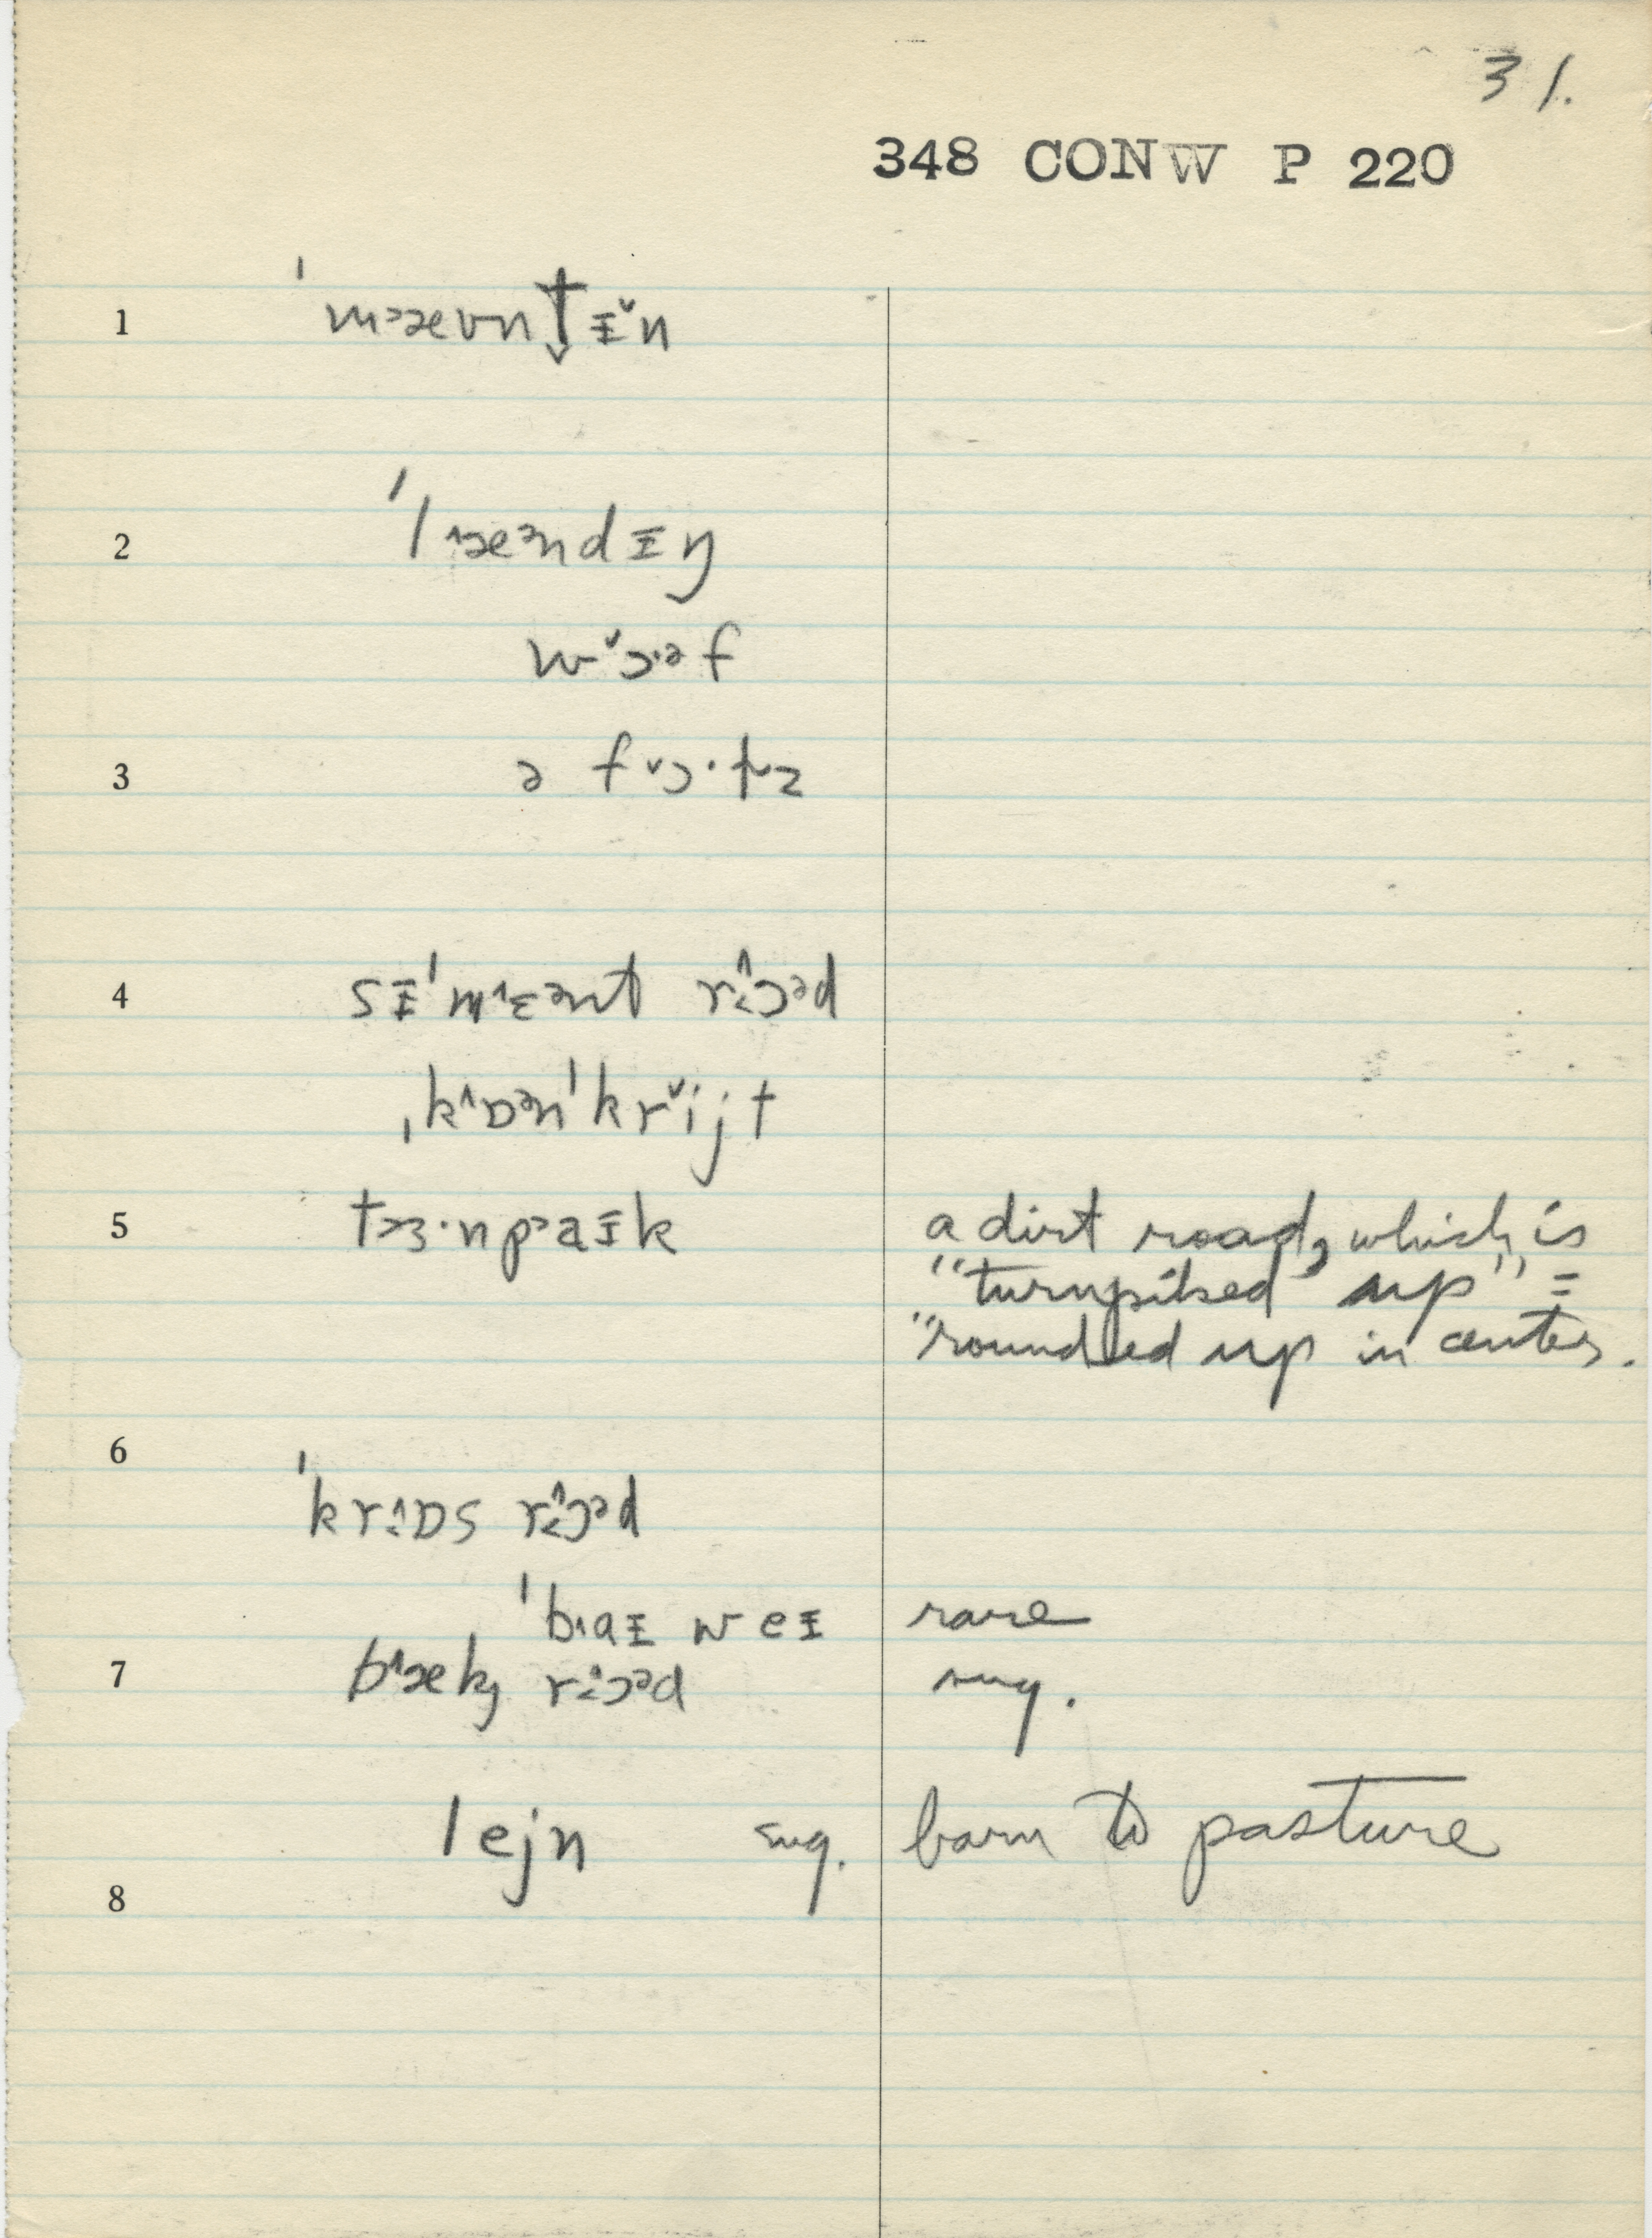 31.
348 CONW P 220
1 ˈmæʊntᵻ̆n
2 ˈlæəndᵻŋ
wɔ·əf
3 ə fɔ·lz
4 sᵻˈmɛənt rɔəd
ˌkɒənˈkrijt
5 tɜ·npaᵻk a dirt road, which is
"turnpiked up" =
"rounded up in center.
6
ˈkrɒs rɔəd
ˈbaᵻ weᵻ rare
7 bæk rɔəd sug.
lejn sug. barn to pasture
8